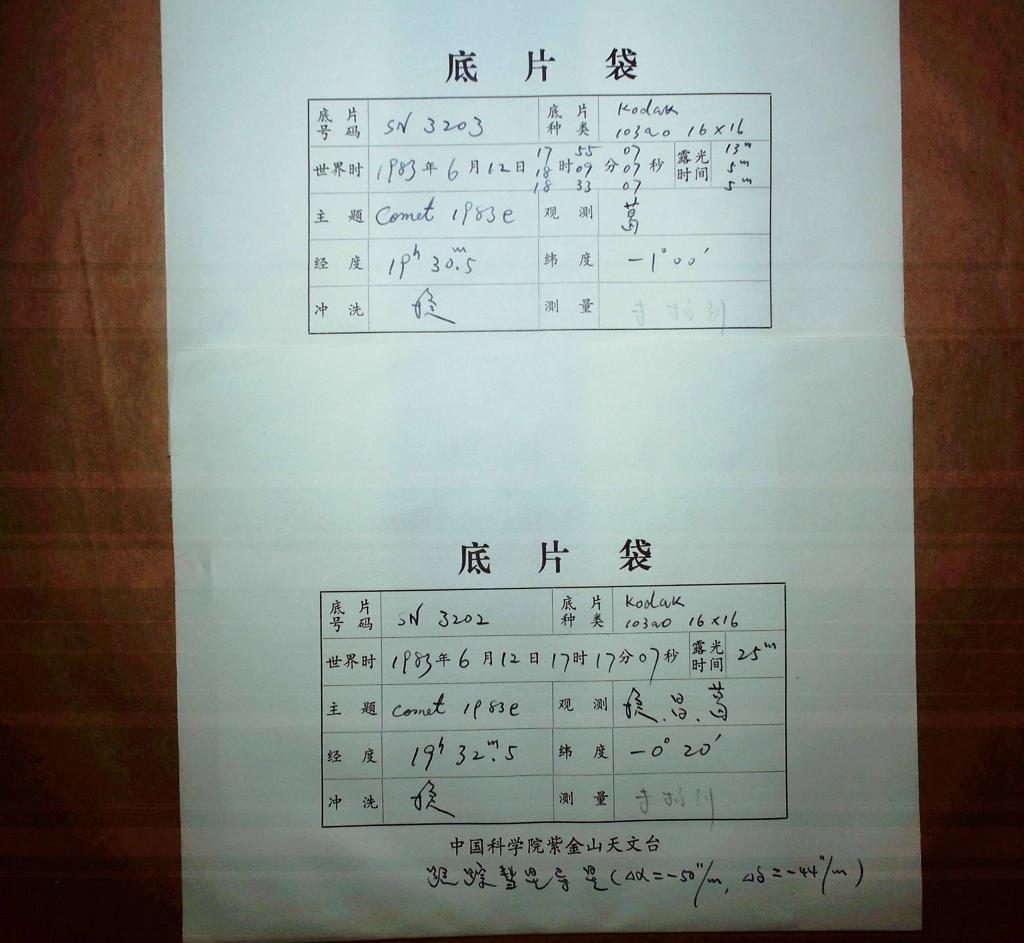 底片袋
底片号码 SN 3203 底片种类 Kodak 103aO 16×16
世界时 1983年6月12日 17时55分07秒 露光时间 13m
18 09 07 5m
18 33 07 5m
主题 Comet 1983e 观测 葛
经度 19h 30m.5 纬度 -1°00′
冲洗 稳 测量
底片袋
底片号码 SN 3202 底片种类 Kodak 103aO 16×16
世界时 1983年6月12日17时17分07秒 露光时间 25m
主题 comet 1983e 观测 稳.昌.葛
经度 19h 32m.5 纬度 -0°20′
冲洗 稳 测量
中国科学院紫金山天文台
跟踪彗星导星(Δα=-50″/m, Δδ=-44″/m)